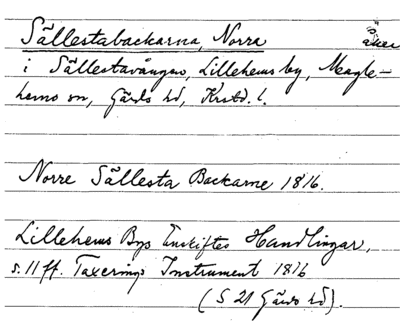 Sällestabackarna, Norra åker
i Sällestavången, Lillehems by, Meagle-
hems sn, Gärds hd, Krstd. l.
Norre Sällesta Backarne 1816.
Lillehems Bys Enskiftes Handlingar,
s. 11 ff. Taxerings Instrument 1816
(S 21 Gärds hd).